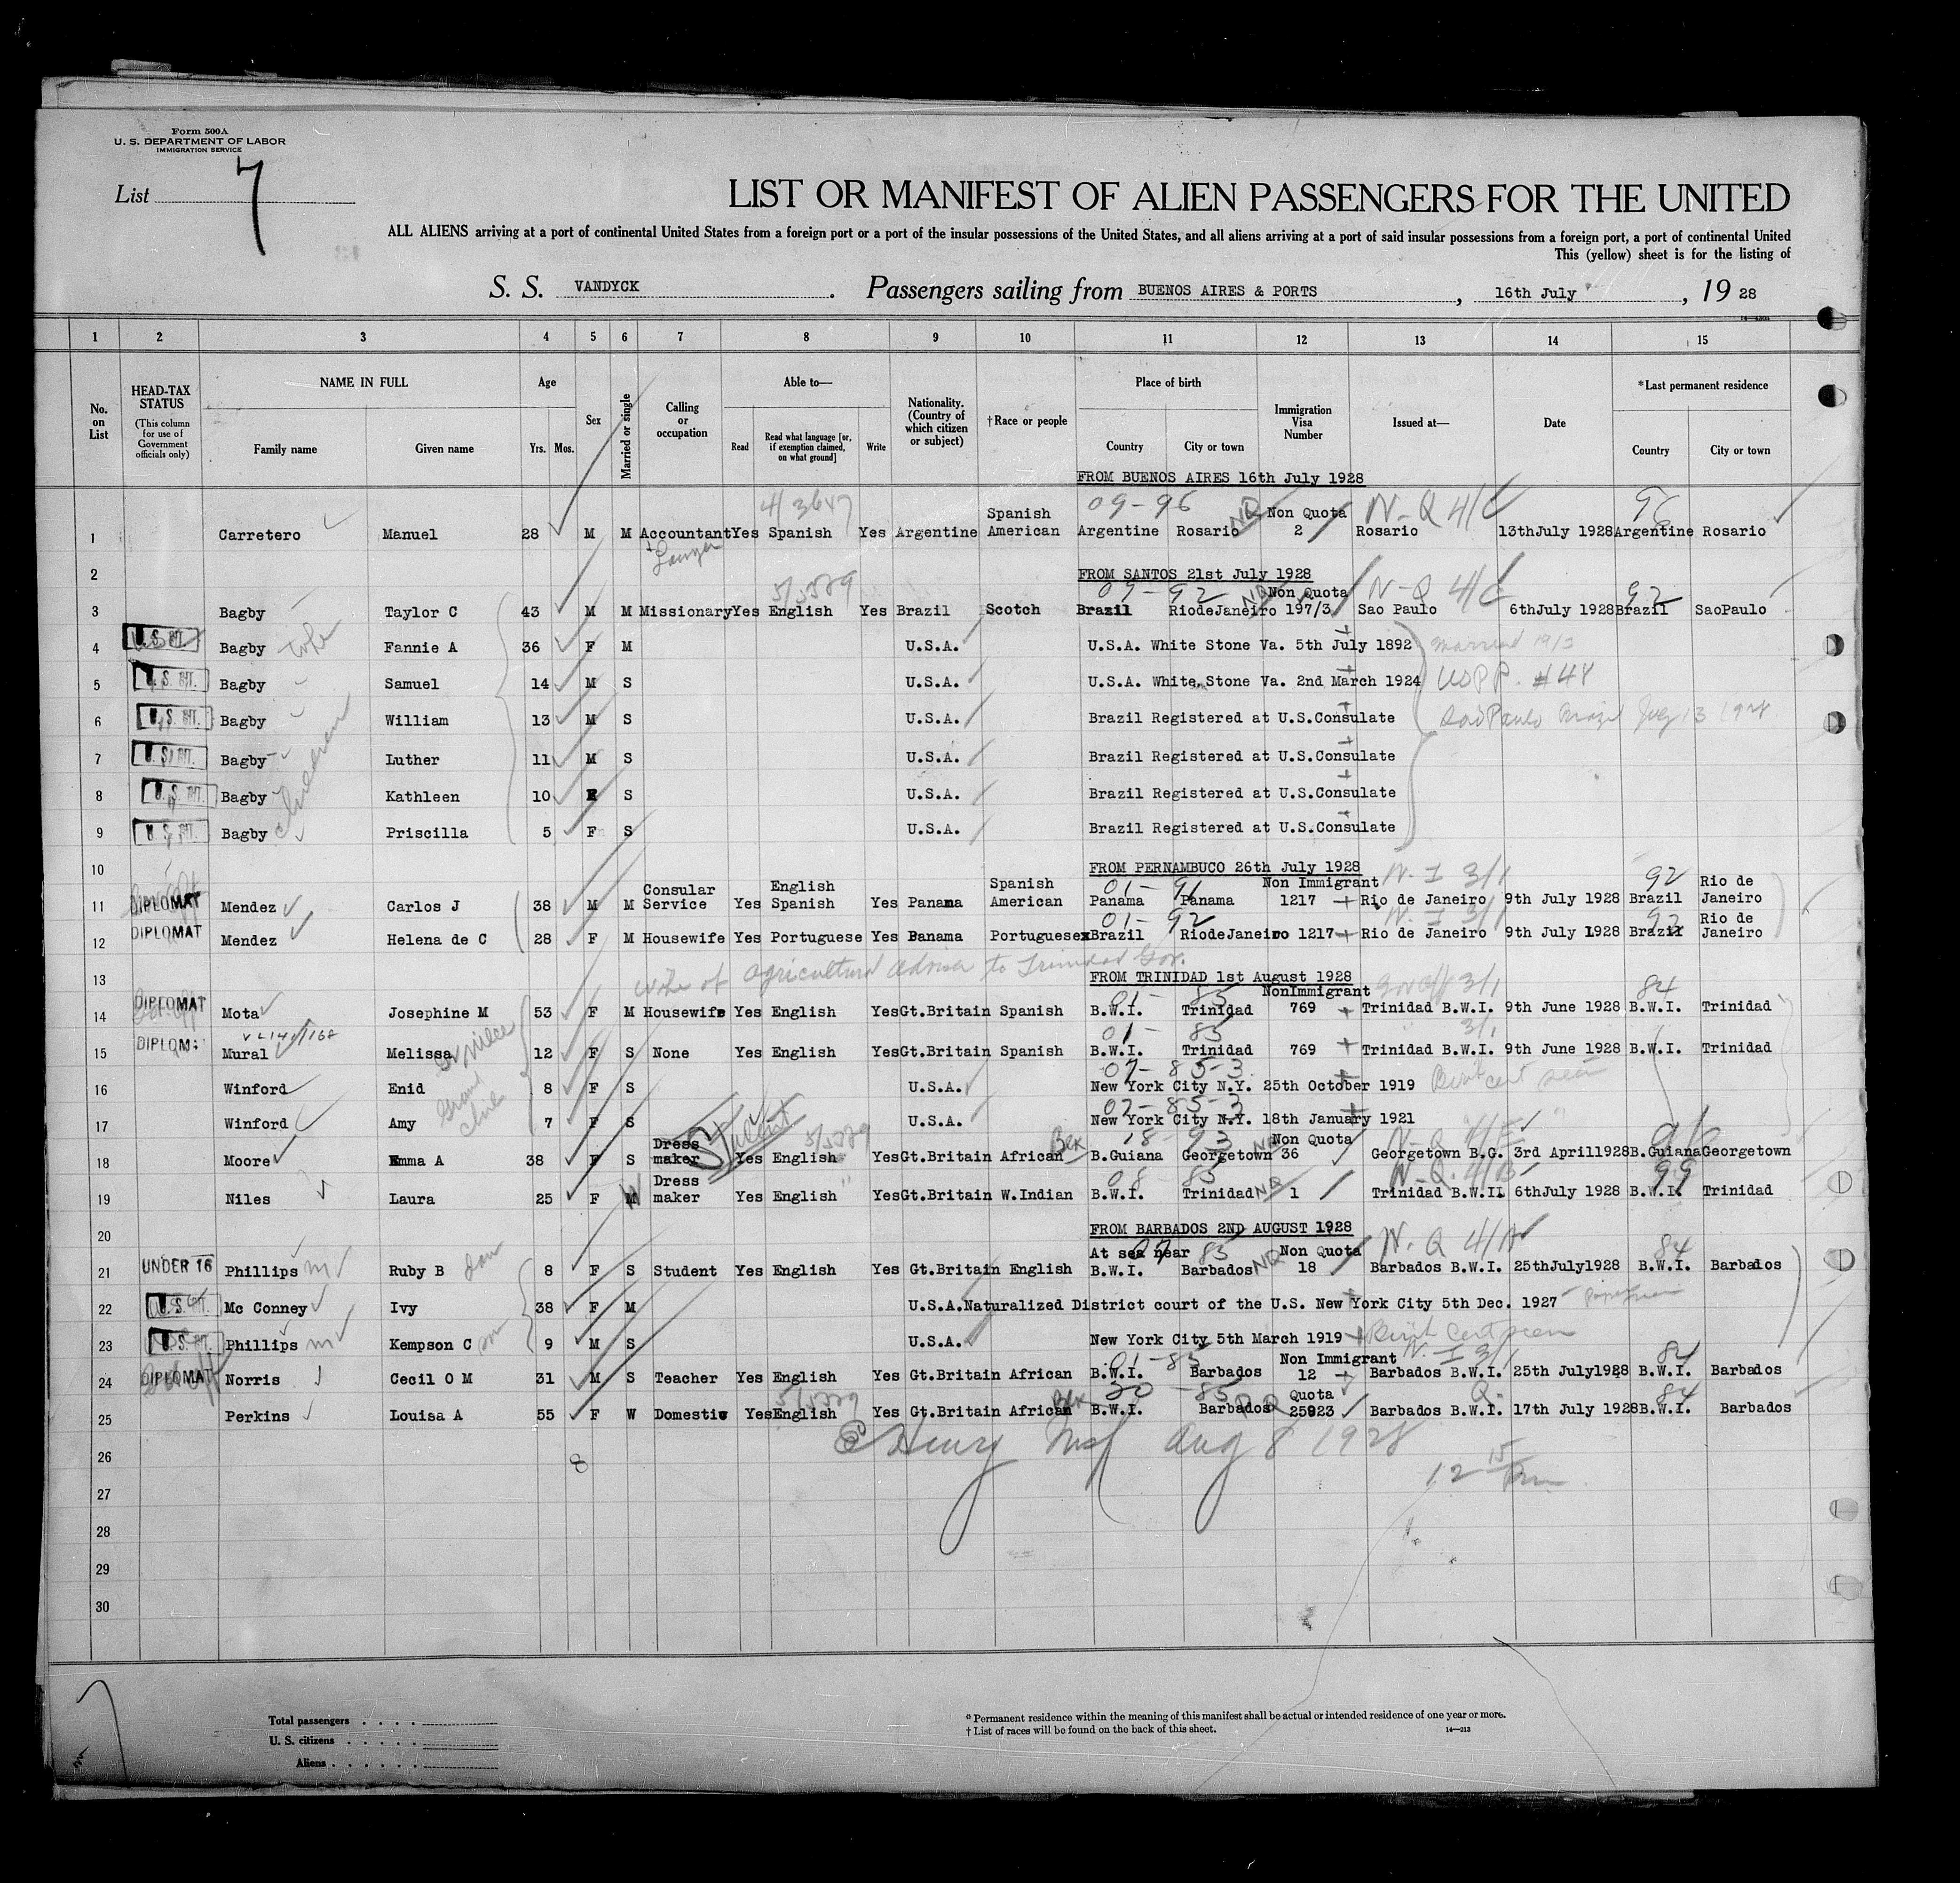 Form 500A
U. S. DEPARTMENT OF LABOR
IMMIGRATION SERVICE
List 7
LIST OR MANIFEST OF ALIEN PASSENGERS FOR THE UNITED
ALL ALIENS arriving at a port of continental United States from a foreign port or a port of the insular possessions of the United States, and all aliens arriving at a port of said insular possessions from a foreign port, a port of continental United
This (yellow) sheet is for the listing of
S. S. VANDYCK. Passengers sailing from BUENOS AIRES & PORTS, 16th July, 19 28
1 2 3 4 5 6 7 8 9 10 11 12 13 14 15
No. on List
HEAD-TAX STATUS (This column for use of Government officials only)
NAME IN FULL Family name Given name
Age Yrs. Mos.
Sex
Married or single
Calling or occupation
Able to— Read Read what language [or, if exemption claimed, on what ground] Write
Nationality. (Country of which citizen or subject)
†Race or people
Place of birth Country City or town
Immigration Visa Number
Issued at—
Date
*Last permanent residence Country City or town
FROM BUENOS AIRES 16th July 1928
09-96 NQ N-Q 4/C 96
1 Carretero Manuel 28 M M Accountant Yes Spanish Yes Argentine Spanish American Argentine Rosario Non Quota 2 Rosario 13thJuly 1928 Argentine Rosario
2 FROM SANTOS 21st July 1928
5/5529 N-Q 4/C 92
3 Bagby Taylor C 43 M M Missionary Yes English Yes Brazil Scotch Brazil RiodeJaneiro Non Quota 197/3 Sao Paulo 6thJuly 1928 Brazil SaoPaulo
4 U.S. CIT. Bagby wife Fannie A 36 F M U.S.A. U.S.A. White Stone Va. 5th July 1892 married 1913
5 U.S. CIT. Bagby Samuel 14 M S U.S.A. U.S.A. White Stone Va. 2nd March 1924 USPP. #48
6 U.S. CIT. Bagby William 13 M S U.S.A. Brazil Registered at U.S.Consulate Sao Paulo Brazil July 13 1928
7 U.S. CIT. Bagby Luther 11 M S U.S.A. Brazil Registered at U.S.Consulate
8 U.S. CIT. Bagby Kathleen 10 F S U.S.A. Brazil Registered at U.S.Consulate
9 U.S. CIT. Bagby children Priscilla 5 F S U.S.A. Brazil Registered at U.S.Consulate
10 FROM PERNAMBUCO 26th July 1928
01-91 N-I 3/1 92
11 DIPLOMAT Mendez Carlos J 38 M M Consular Service Yes English Spanish Yes Panama Spanish American Panama Panama Non Immigrant 1217 Rio de Janeiro 9th July 1928 Brazil Rio de Janeiro
01-92 N-I 3/1 92
12 DIPLOMAT Mendez Helena de C 28 F M Housewife Yes Portuguese Yes Panama Portuguese Brazil RiodeJaneiro 1217 Rio de Janeiro 9th July 1928 Brazil Rio de Janeiro
wife of agricultural adviser to Trinidad Gov.
13 FROM TRINIDAD 1st August 1928
01-85 Gov Off 3/1 84
14 DIPLOMAT Mota Josephine M 53 F M Housewife Yes English Yes Gt.Britain Spanish B.W.I. Trinidad NonImmigrant 769 Trinidad B.W.I. 9th June 1928 B.W.I. Trinidad
01 85 3/1
15 DIPLOM Mural Melissa niece 12 F S None Yes English Yes Gt.Britain Spanish B.W.I. Trinidad 769 Trinidad B.W.I. 9th June 1928 B.W.I. Trinidad
07-85-3
16 Winford Enid 8 F S U.S.A. New York City N.Y. 25th October 1919 Birth cert seen
07-85-3
17 Winford Amy 7 F S U.S.A. New York City N.Y. 18th January 1921
Student 5/5529 18-93
18 Moore Emma A 38 F S Dress maker Yes English Yes Gt.Britain African Blk B.Guiana Georgetown Non Quota 36 Georgetown B.G. 3rd April1928 B.Guiana Georgetown
08 85 NQ N-Q-4/B 99
19 Niles Laura 25 F M Dress maker Yes English Yes Gt.Britain W.Indian B.W.I. Trinidad 1 Trinidad B.W.II 6thJuly 1928 B.W.I. Trinidad
20 FROM BARBADOS 2ND AUGUST 1928
85 NQ N-Q 4/A 84
21 UNDER 16 Phillips Ruby B 8 F S Student Yes English Yes Gt.Britain English At sea near B.W.I. Barbados Non Quota 18 Barbados B.W.I. 25thJuly1928 B.W.I. Barbados
22 U.S. CIT. Mc Conney Ivy 38 F M U.S.A.Naturalized District court of the U.S. New York City 5th Dec. 1927
23 U.S. CIT. Phillips Kempson C 9 M S U.S.A. New York City 5th March 1919 Birth Cert seen
01-85 N-I 3/1 84
24 DIPLOMAT Norris Cecil O M 31 M S Teacher Yes English Yes Gt.Britain African B.W.I. Barbados Non Immigrant 12 Barbados B.W.I. 25th July1928 B.W.I. Barbados
5/5529 30-85 Q 84
25 Perkins Louisa A 55 F W Domestic Yes English Yes Gt.Britain African Blk B.W.I. Barbados Quota 25923 Barbados B.W.I. 17th July 1928 B.W.I. Barbados
Henry Aug 8 1928
26 8
12 15 Pm
27
28
29
30
Total passengers
U. S. citizens
Aliens
* Permanent residence within the meaning of this manifest shall be actual or intended residence of one year or more.
† List of races will be found on the back of this sheet. 14—213